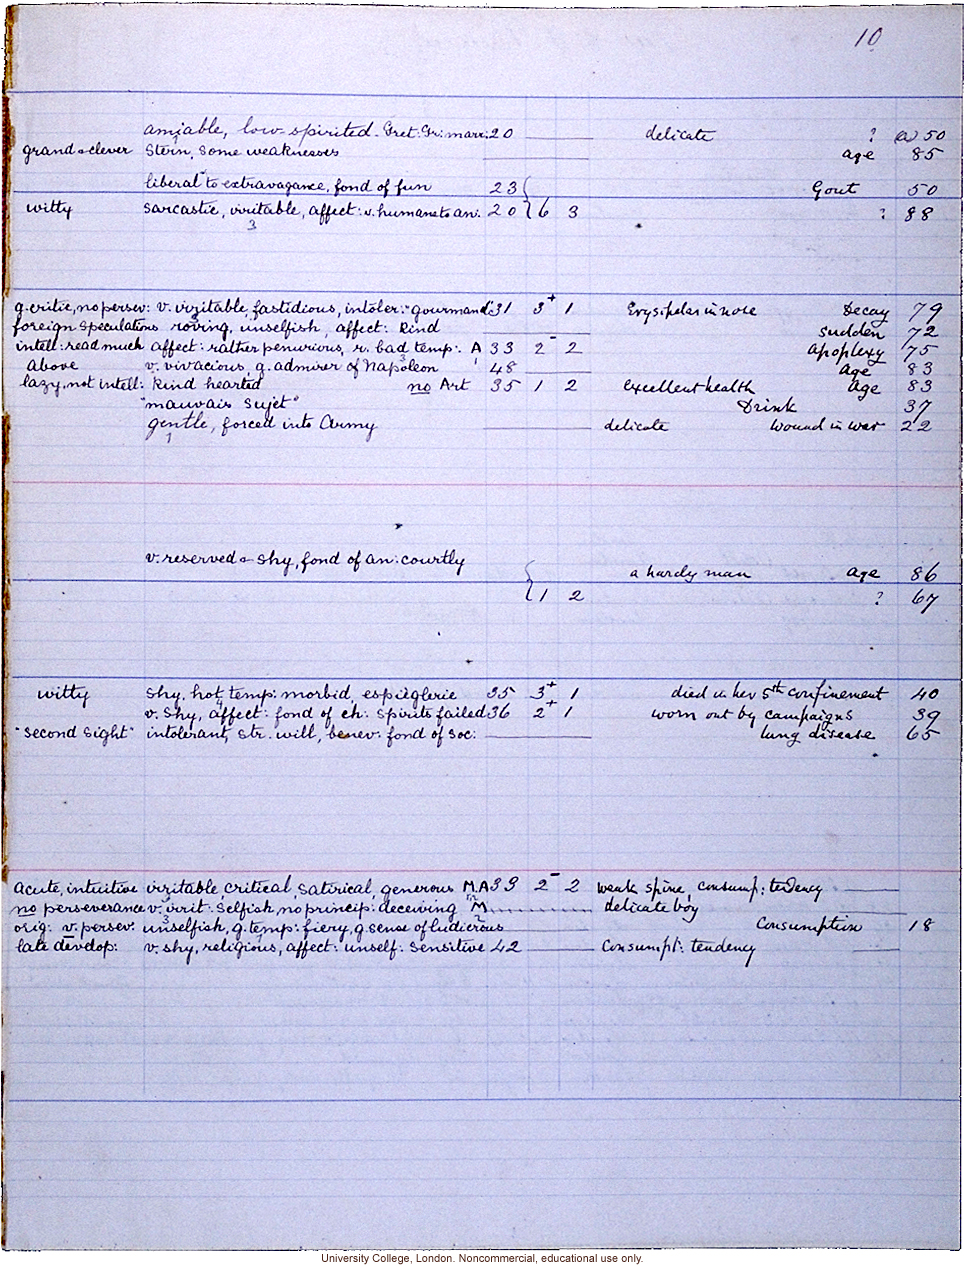 10
amiable, low-spirited. Gret: Gr: marr: 20 delicate ? (a) 50
grand & clever Stern, some weaknesses age 85
liberal to extravagance, fond of fun 23 Gout 50
witty sarcastic, irritable, affect: v. humane to an: 20 6 3 ? 88
3
g. critic, no persev: v. irritable, fastidious, intoler: "gourmand" 31 3+ 1 Erysipelas in nose Decay 79
foreign speculations roving, unselfish, affect: kind sudden 72
intell: read much affect: rather penurious, r. bad temp: A 33 2- 2 apoplexy 75
above v. vivacious, g. admirer of Napoleon 48 age 83
lazy, not intell: kind hearted no Art 35 1 2 excellent health age 83
"mauvais sujet" Drink 37
gentle, forced into Army delicate wound in war 22
1
v. reserved & shy, fond of an: courtly
a hardy man age 86
1 2 ? 67
witty shy, hot temp: morbid, espièglerie 35 3+ 1 died in her 5th confinement 40
v. shy, affect: fond of ch: spirits failed 36 2+ 1 worn out by campaigns 39
"second sight" intolerant, str. will, benev: fond of soc: lung disease 65
acute, intuitive irritable critical satirical, generous M.A 39 2- 2 weak spine, consump: tendency
no perseverance v. irrit: selfish, no princip: deceiving M delicate boy
orig: v. persev: unselfish, g. temp: fiery, g. sense of ludicrous Consumption 18
late develop: v. shy, religious, affect: unself: sensitive 42 Consumpt: tendency
University College, London. Noncommercial, educational use only.